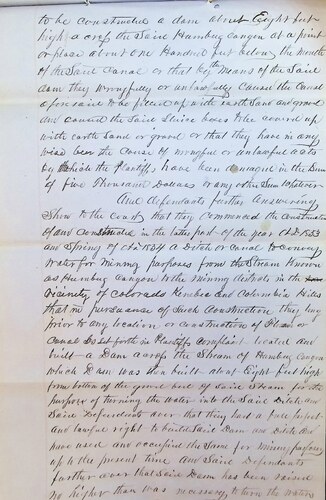 to be constructed a dam about Eight feet
high across the Said Humbug Cañgon at a point
or place about one Hundred feet below the mouth
of the Said Canal or that by the means of the Said
dam they wrongfully or unlawfully Cause the Canal
afore said to be filled up with earth Sand and gravel
and caused the Said Sluice boxes to be covered up
with earth Sand or gravel or that they have in any
wise been the Cause of wrongful or unlawful acts
by which the Plaintiffs have been damaged in the Sum
of five Thousand Dollars or any other Sum Whatever
And defendants further Answering
Show to the Court that they commenced the Construction
of and Constructed in the latter part of the year A.D. 1853
and Spring of A.D. 1854 a Ditch or Canal to convey
water for mining purposes from the Stream Known
as Humbug Cangon to the mining districts in the
vicinity of Colorado and Columbia Hills
that in pursuance of Such Construction they long
prior to any location or Construction of Flume or
Canal as Set forth in Plaintiffs complaint located and
built a Dam across the Stream of Humbug Cangon
which Dam was then built about Eight feet high
from bottom of the gravel bed of Said Stream for the
purpose of turning the water into the Said Ditch and
Said Defendants aver that they had a full perfect
and lawful right to build Said Dam and Ditch and
have used and occupied the Same for mining purposes
up to the present time And Said Defendants
further aver that Said Dam has been raised
no higher than was necessary to turn the waters